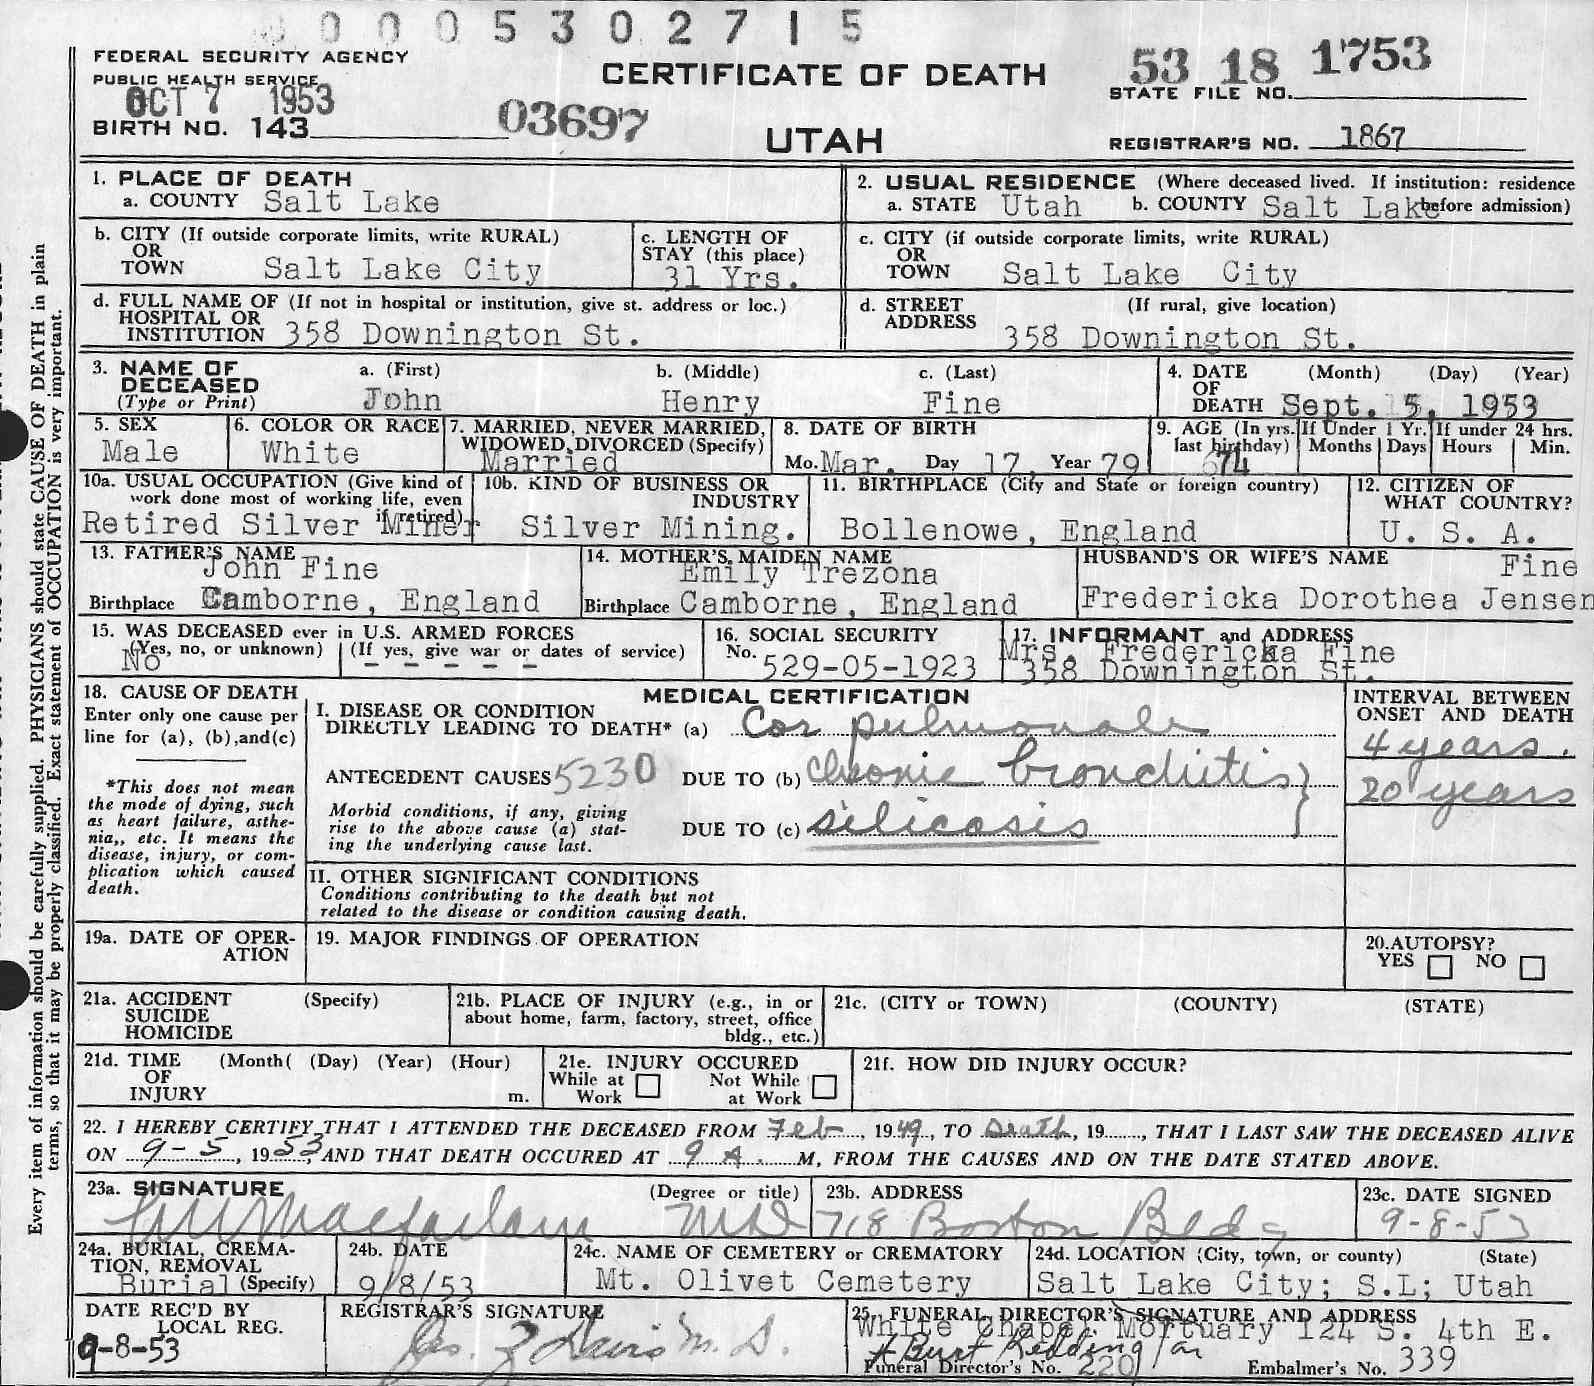 0005302715
FEDERAL SECURITY AGENCY
PUBLIC HEALTH SERVICE
OCT 7 1953
BIRTH NO. 143
03697
CERTIFICATE OF DEATH
UTAH
53 18 1753
STATE FILE NO.
REGISTRAR'S NO. 1867
Every item of information should be carefully supplied. PHYSICIANS should state CAUSE OF DEATH in plain
terms, so that it may be properly classified. Exact statement of OCCUPATION is very important.
1. PLACE OF DEATH
a. COUNTY Salt Lake
2. USUAL RESIDENCE (Where deceased lived. If institution: residence
before admission)
a. STATE Utah b. COUNTY Salt Lake
b. CITY (If outside corporate limits, write RURAL)
OR
TOWN Salt Lake City
c. LENGTH OF
STAY (this place)
31 Yrs.
c. CITY (if outside corporate limits, write RURAL)
OR
TOWN Salt Lake City
d. FULL NAME OF (If not in hospital or institution, give st. address or loc.)
HOSPITAL OR
INSTITUTION 358 Downington St.
d. STREET (If rural, give location)
ADDRESS
358 Downington St.
3. NAME OF a. (First) b. (Middle) c. (Last)
DECEASED
(Type or Print) John Henry Fine
4. DATE (Month) (Day) (Year)
OF
DEATH Sept. 5, 1953
5. SEX
Male
6. COLOR OR RACE
White
7. MARRIED, NEVER MARRIED,
WIDOWED, DIVORCED (Specify)
Married
8. DATE OF BIRTH
Mo. Mar. Day 17, Year 79
9. AGE (In yrs. last birthday)
74
If Under 1 Yr.
Months Days
If under 24 hrs.
Hours Min.
10a. USUAL OCCUPATION (Give kind of
work done most of working life, even
if retired)
Retired Silver Miner
10b. KIND OF BUSINESS OR
INDUSTRY
Silver Mining.
11. BIRTHPLACE (City and State or foreign country)
Bollenowe, England
12. CITIZEN OF
WHAT COUNTRY?
U. S. A.
13. FATHER'S NAME
John Fine
Birthplace Camborne, England
14. MOTHER'S MAIDEN NAME
Emily Trezona
Birthplace Camborne, England
HUSBAND'S OR WIFE'S NAME
Fine
Fredericka Dorothea Jensen
15. WAS DECEASED ever in U.S. ARMED FORCES
(Yes, no, or unknown) (If yes, give war or dates of service)
No - - - - - -
16. SOCIAL SECURITY
No. 529-05-1923
17. INFORMANT and ADDRESS
Mrs. Fredericka Fine
358 Downington St.
18. CAUSE OF DEATH
Enter only one cause per
line for (a), (b), and(c)
*This does not mean
the mode of dying, such
as heart failure, asthe-
nia,, etc. It means the
disease, injury, or com-
plication which caused
death.
MEDICAL CERTIFICATION
I. DISEASE OR CONDITION
DIRECTLY LEADING TO DEATH* (a) Cor pulmonale
ANTECEDENT CAUSES 5230 DUE TO (b) chronic bronchitis
Morbid conditions, if any, giving
rise to the above cause (a) stat-
ing the underlying cause last.
DUE TO (c) silicosis
INTERVAL BETWEEN
ONSET AND DEATH
4 years.
20 years
II. OTHER SIGNIFICANT CONDITIONS
Conditions contributing to the death but not
related to the disease or condition causing death.
19a. DATE OF OPER-
ATION
19. MAJOR FINDINGS OF OPERATION
20. AUTOPSY?
YES NO
21a. ACCIDENT (Specify)
SUICIDE
HOMICIDE
21b. PLACE OF INJURY (e.g., in or
about home, farm, factory, street, office
bldg., etc.)
21c. (CITY or TOWN) (COUNTY) (STATE)
21d. TIME (Month( (Day) (Year) (Hour)
OF
INJURY m.
21e. INJURY OCCURED
While at Work Not While at Work
21f. HOW DID INJURY OCCUR?
22. I HEREBY CERTIFY THAT I ATTENDED THE DECEASED FROM Feb, 1949, TO Death, 19......, THAT I LAST SAW THE DECEASED ALIVE
ON 9-5, 1953, AND THAT DEATH OCCURED AT 9 A. M, FROM THE CAUSES AND ON THE DATE STATED ABOVE.
23a. SIGNATURE (Degree or title)
Macfarlane MD
23b. ADDRESS
718 Boston Bldg
23c. DATE SIGNED
9-8-53
24a. BURIAL, CREMA-
TION, REMOVAL
Burial (Specify)
24b. DATE
9/8/53
24c. NAME OF CEMETERY or CREMATORY
Mt. Olivet Cemetery
24d. LOCATION (City, town, or county) (State)
Salt Lake City; S.L; Utah
DATE REC'D BY
LOCAL REG.
9-8-53
REGISTRAR'S SIGNATURE
Jas. Z Davis M.D.
25. FUNERAL DIRECTOR'S SIGNATURE AND ADDRESS
White Chapel Mortuary 124 S. 4th E.
Burt Redding
Funeral Director's No. 220 Embalmer's No. 339